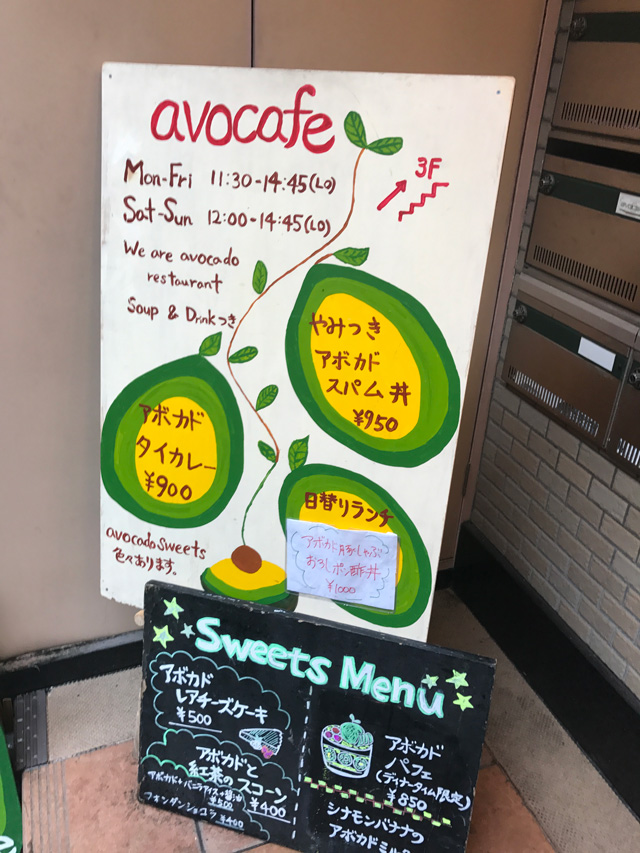 avocafe
Mon-Fri 11:30-14:45(LO)
Sat-Sun 12:00-14:45(LO)
3F
We are avocado
restaurant
Soup & Drinkつき
やみつき
アボカド
スパム丼
¥950
アボカド
タイカレー
¥900
日替りランチ
アボカド豚しゃぶ
おろしポン酢丼
¥1000
avocado sweets
色々あります。
Sweets Menu
アボカド
レアチーズケーキ
¥500
アボカドと
紅茶のスコーン
¥400
アボカド+バニラアイス+醤油
¥500
フォンダンショコラ ¥400
アボカド
パフェ
(ディナータイム限定)
¥850
シナモンバナナの
アボカドミルク